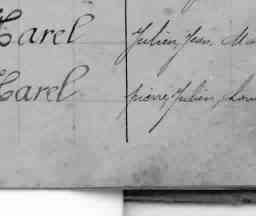 Harel Julien, Jean, Ma
Harel pierre Julien, Lou